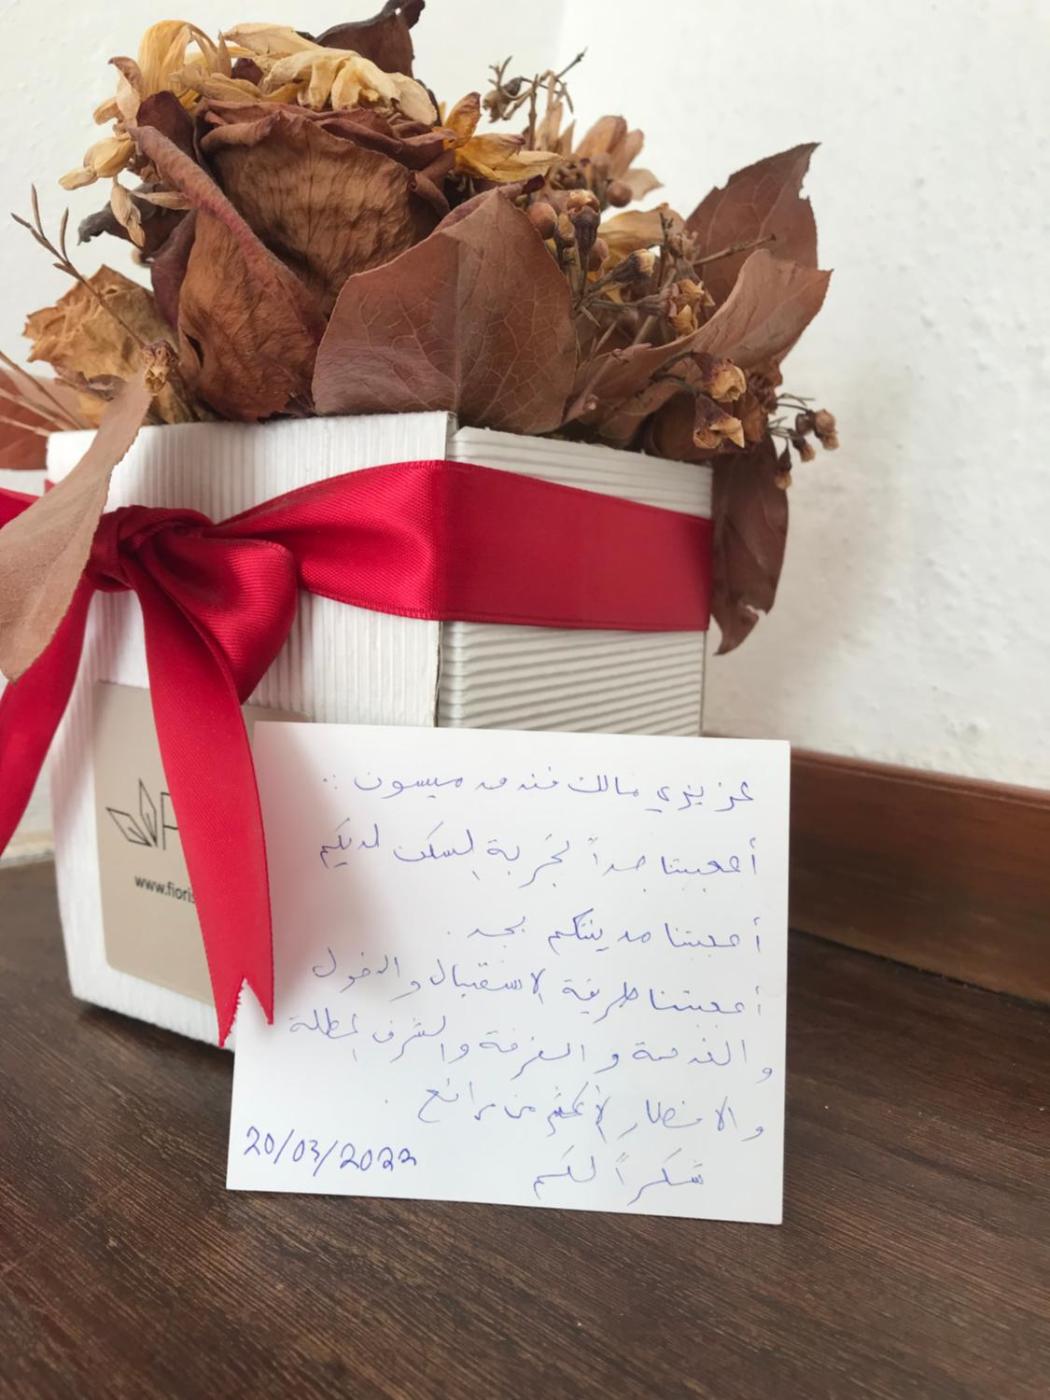 عزيزي مالك فندق ميسون :
أعجبتنا جداً تجربة السكن لديكم
أعجبتنا مدينتكم بجد .
أعجبتنا طريقة الاستقبال و الدخول
و الخدمة و الغرفة و الشرف المطلة
و الافطار الأكثر من رائع .
شكراً لكم
20/03/2022
www.fioris